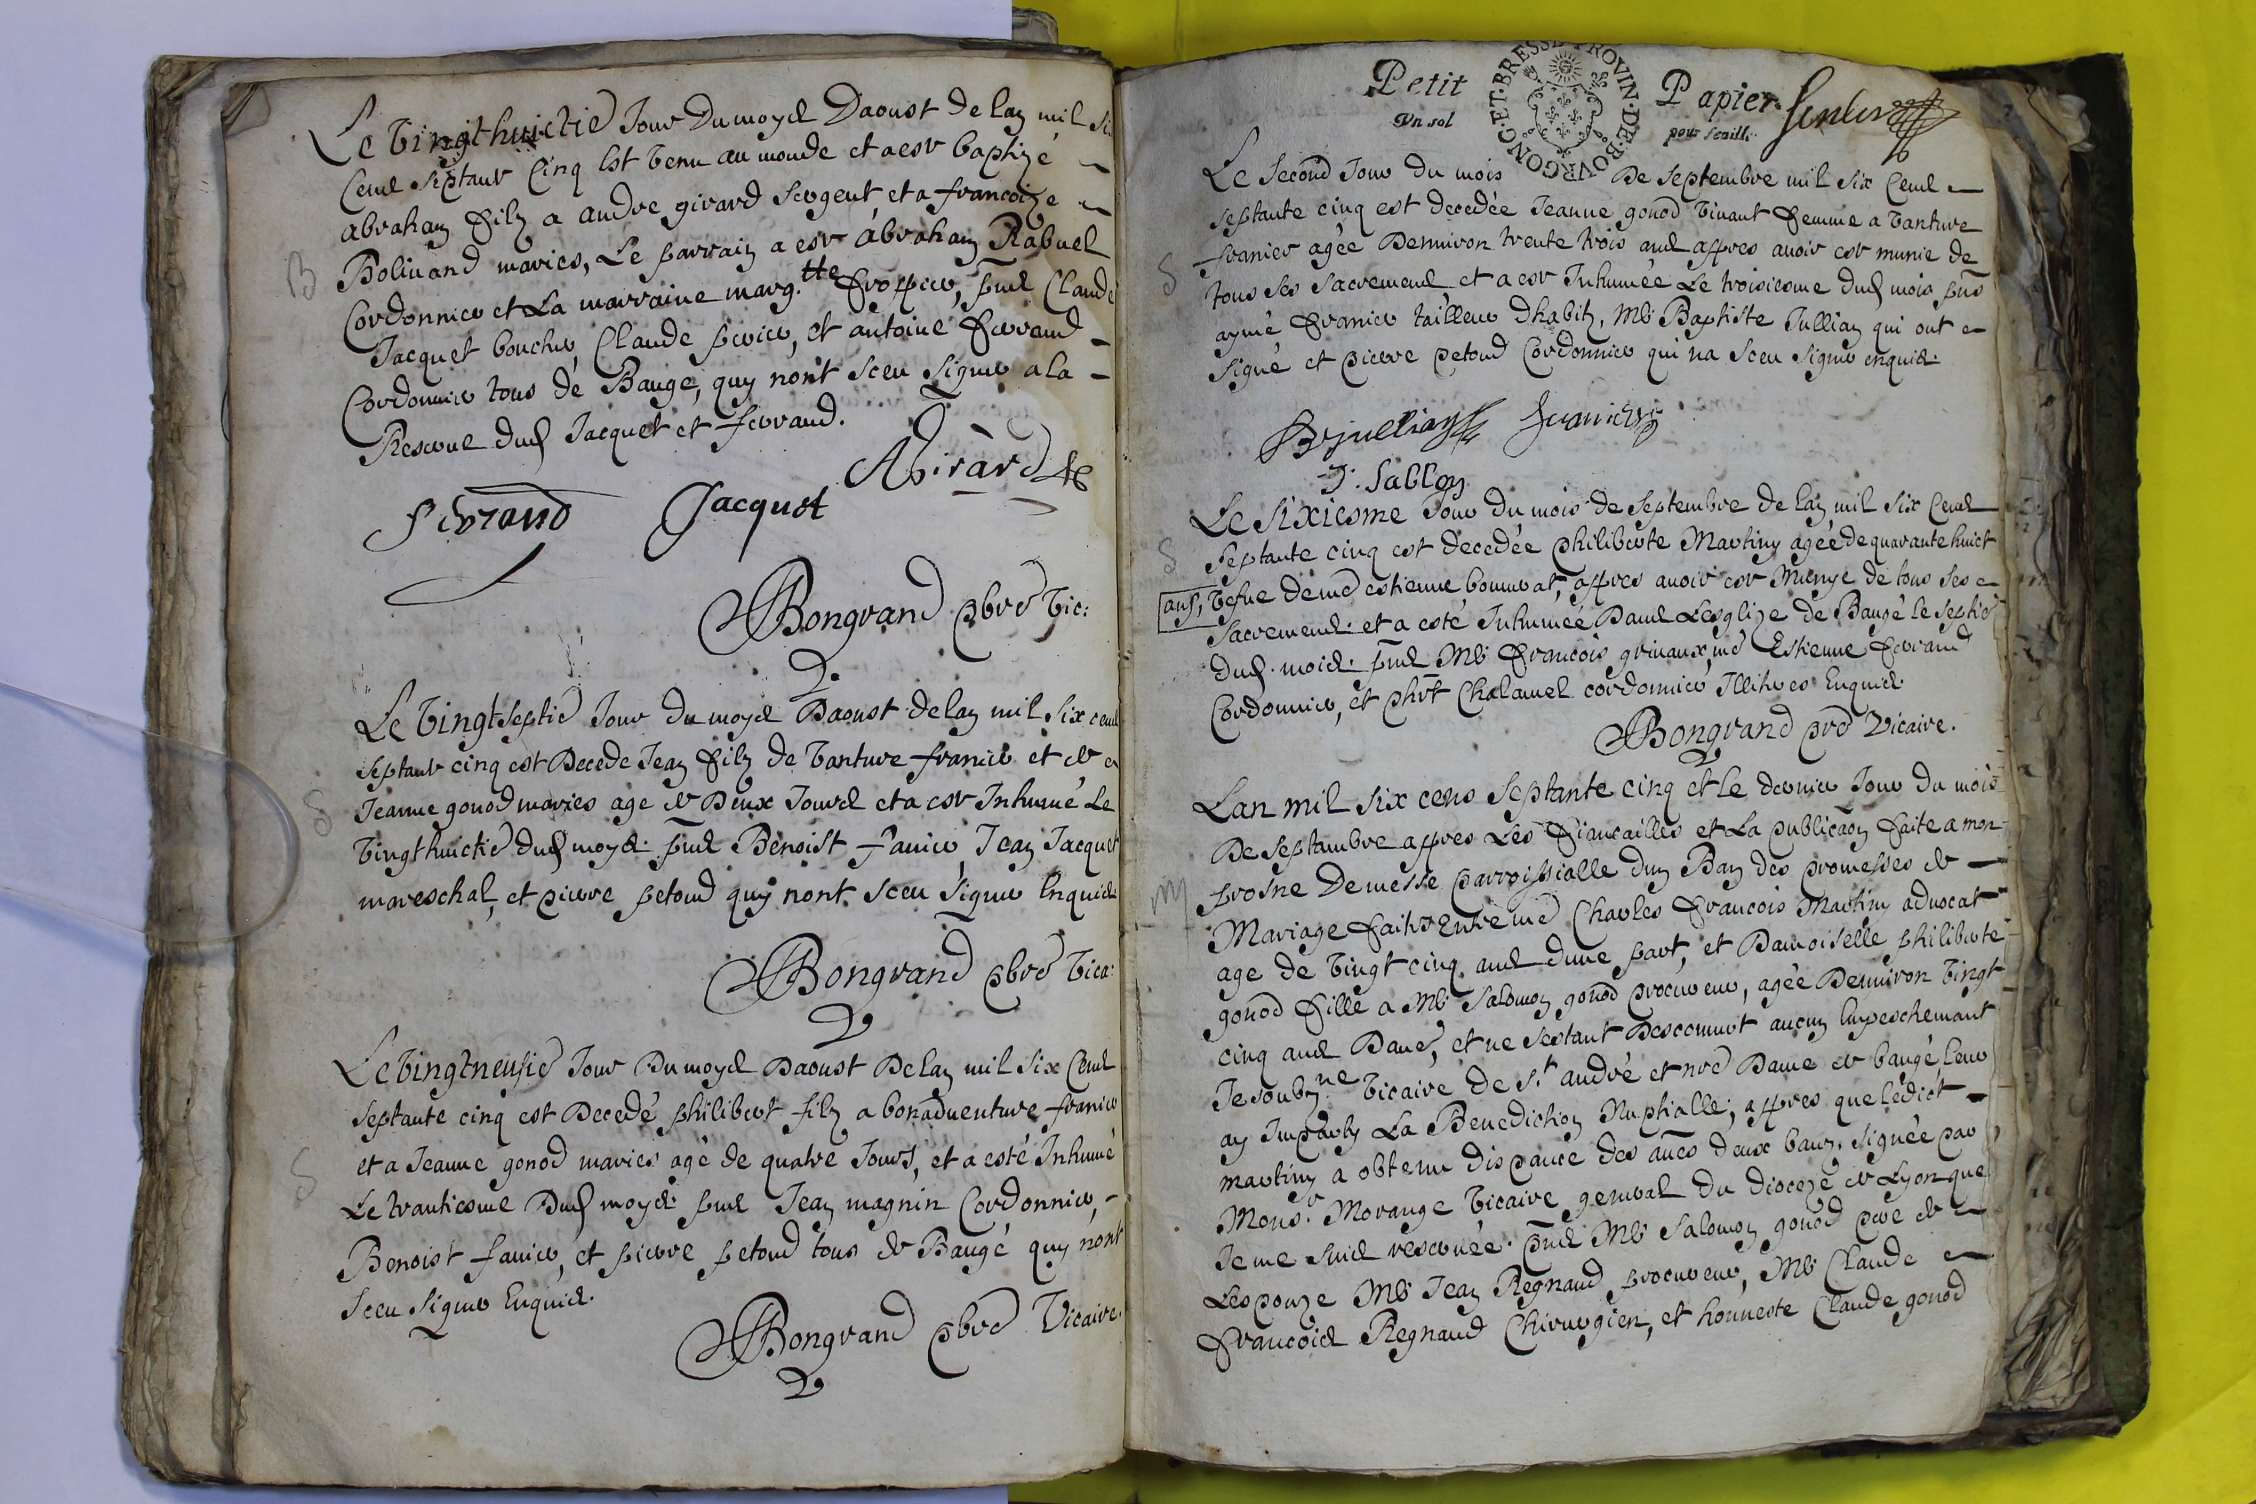 B
Le vingthuictie Jour du moys Daoust de lan mil six
Cens septante Cinq Est venu au monde et a este baptizé
abraham filz a andre girard sergent et a francoize
Bolivand maries, Le parrain a este abraham Rabuel
Cordonnier et La marraine marg.tte prosper, pns Claude
Jacquet boucher, Claude perier, et antoine ferrand
Cordonnier tous de Bauge, quy nont sceu signer a la
Reserve dud Jacquet et ferrand.
AGirard
ferrand Jacquet
Bongrand pbre vic:
S
Le vingtseptie Jour du moys Daoust de lan mil six cens
septante cinq est Decede Jean filz de vanture franier et de
Jeanne gonod maries age de Deux Jours et a este Inhumé Le
vingthuictie dud moys. pns Benoist fanier, Jean Jacquet
mareschal, et pierre petond quy nont sceu signer Enquis
Bongrand pbre vica:
S
Le vingtneufie Jour Du moys Daoust De lan mil six Cens
septante cinq est Decedé philibert filz a bonadventure franier
et a Jeanne gonod maries agé de quatre Jours, et a esté Inhumé
Le trantiesme Dud moys. pns Jean magnin Cordonnier,
Benoist fanier, et pierre petond tous de Baugé quy nont
sceu signer Enquis.
Bongrand pbre Vicaire.
Petit Papier
Vn sol pour feuille
BOVRGONG·ET·BRESSE PROVIN·DE
S
Le second Jour du mois De septembre mil six Cens
septante cinq est decedée Jeanne gonod vivant femme a vanture
franier agée Denviron trente trois ans appres avoir este munie de
tous ses sacremens et a este Inhumée Le troisiesme dud mois pns
aymé franier tailleur dhabitz, Me Baptiste Jullian qui ont
signé et pierre petond Cordonnier qui na sceu signer enquis.
BJullian franier
J. Sablon
S
Le sixiesme Jour du mois de septembre de lan mil six Cens
septante cinq est decedée philiberte Martiny agée de quarante huict
ans, vefve de me estienne bonnerat, appres avoir este Munye de tous ses
sacremens et a esté Inhumée Dans Lesglize de Baugé le septie
dud. mois. pns Me francois grivaux, me Estienne ferrand
Cordonnier, et phrt Chalamel cordonnier Illitres Enquis.
Bongrand pre Vicaire.
M
Lan mil six cens septante cinq et le dernier Jour du mois
De septambre appres Les fiancailles et La publicaon faite a mon
prosne De messe parroissialle dun Ban des promesses de
Mariage faites Entre me Charles francois Martiny advocat
age de vingt cinq ans dune part, et Damoiselle philiberte
gonod fille a Me Salomon gonod procureur, agée Denviron vingt
cinq ans Daue, et ne sestant Descouvert aucun Empeschemant
Je soubz.ne vicaire de S.t andré et nre Dame de baugé leur
ay Imparty La Benediction Nuptialle, appres que ledict
martiny a obtenu dispance des aues deux bans. signée par
Mons.r Morange vicaire general du dioceze de Lyon que
Je me suis reservée. pns Me Salomon gonod pere de
Lespouze Me Jean Regnaud procureur, Me Claude
francois Regnaud Chirurgien, et honneste Claude gonod